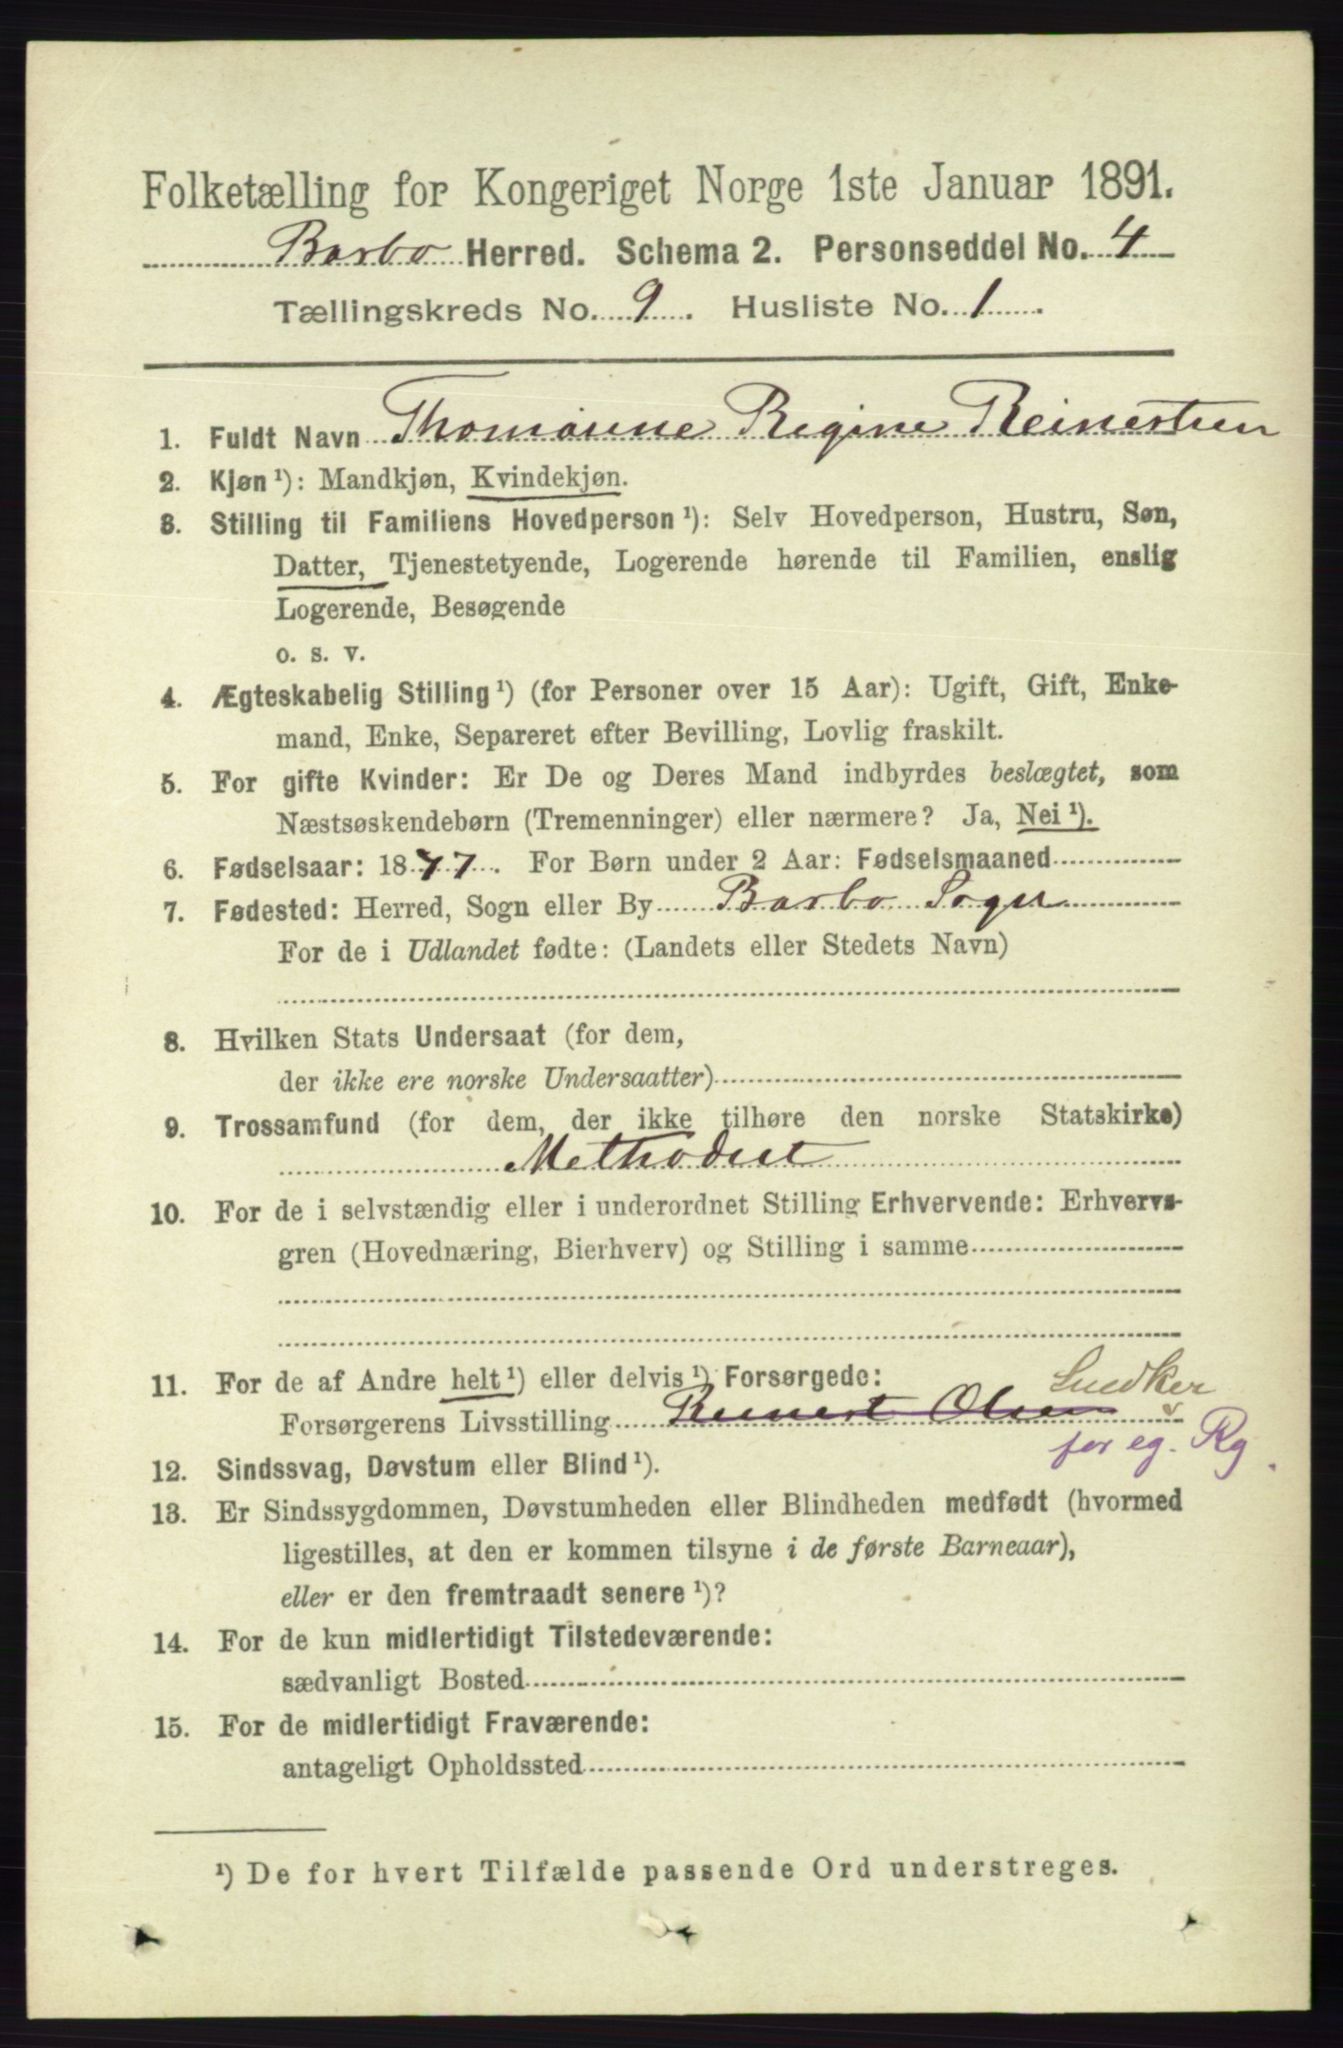 Folketælling for Kongeriget Norge 1ste Januar 1891.
Barbo Herred. Schema 2. Personseddel No. 4
Tællingskreds No. 9. Husliste No. 1.
1. Fuldt Navn Thomasine Regine Reinertsen
2. Kjøn ¹): Mandkjøn, Kvindekjøn.
3. Stilling til Familiens Hovedperson ¹): Selv Hovedperson, Hustru, Søn,
Datter, Tjenestetyende, Logerende hørende til Familien, enslig
Logerende, Besøgende
o. s. v.
4. Ægteskabelig Stilling ¹) (for Personer over 15 Aar): Ugift, Gift, Enke-
mand, Enke, Separeret efter Bevilling, Lovlig fraskilt.
5. For gifte Kvinder: Er De og Deres Mand indbyrdes beslægtet, som
Næstsøskendebørn (Tremenninger) eller nærmere? Ja, Nei ¹).
6. Fødselsaar: 1877. For Børn under 2 Aar: Fødselsmaaned
7. Fødested: Herred, Sogn eller By Barbo Sogn
For de i Udlandet fødte: (Landets eller Stedets Navn)
8. Hvilken Stats Undersaat (for dem,
der ikke ere norske Undersaatter)
9. Trossamfund (for dem, der ikke tilhøre den norske Statskirke)
Methodist
10. For de i selvstændig eller i underordnet Stilling Erhvervende: Erhvervs-
gren (Hovednæring, Bierhverv) og Stilling i samme
11. For de af Andre helt ¹) eller delvis ¹) Forsørgede:
Snedker
Forsørgerens Livsstilling Reinert Olsen
for eg. Rg.
12. Sindssvag, Døvstum eller Blind ¹).
13. Er Sindssygdommen, Døvstumheden eller Blindheden medfødt (hvormed
ligestilles, at den er kommen tilsyne i de første Barneaar),
eller er den fremtraadt senere ¹)?
14. For de kun midlertidigt Tilstedeværende:
sædvanligt Bosted
15. For de midlertidigt Fraværende:
antageligt Opholdssted
¹) De for hvert Tilfælde passende Ord understreges.